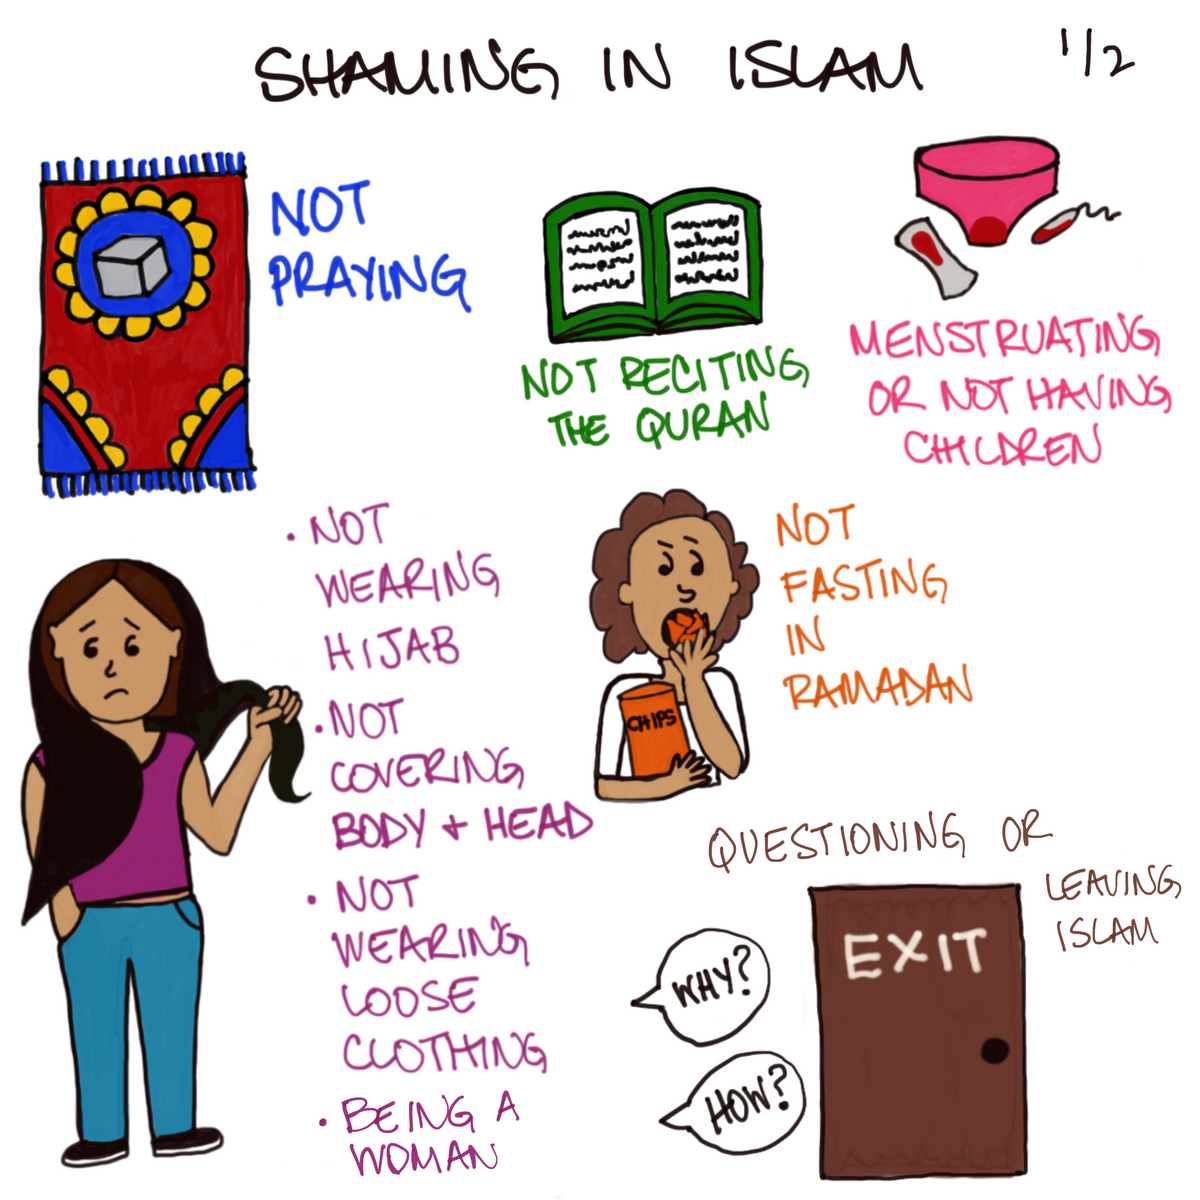 SHAMING IN ISLAM
1/2
NOT
PRAYING
NOT RECITING
THE QURAN
MENSTRUATING
OR NOT HAVING
CHILDREN
• NOT
WEARING
HIJAB
• NOT
COVERING
BODY + HEAD
• NOT
WEARING
LOOSE
CLOTHING
• BEING A
WOMAN
NOT
FASTING
IN
RAMADAN
CHIPS
QUESTIONING OR
LEAVING
ISLAM
EXIT
WHY?
HOW?